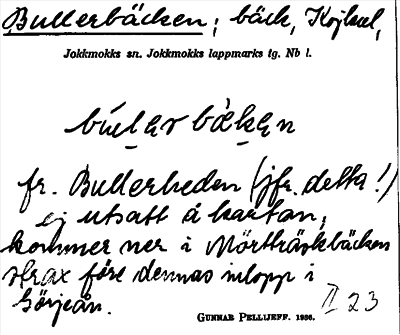 Bullerbäcken; bäck, Kojkul,
Jokkmokks sn. Jokkmokks lappmarks tg. Nb l.
búlar bàkan
fr. Bullerheden (jfr. detta!)
ej utsatt å kartan,
kommer ner i Mörtträskbäcken
strax före dennas inlopp i
Görjeån.
GUNNAR PELLIJEFF. 1936.
II 23